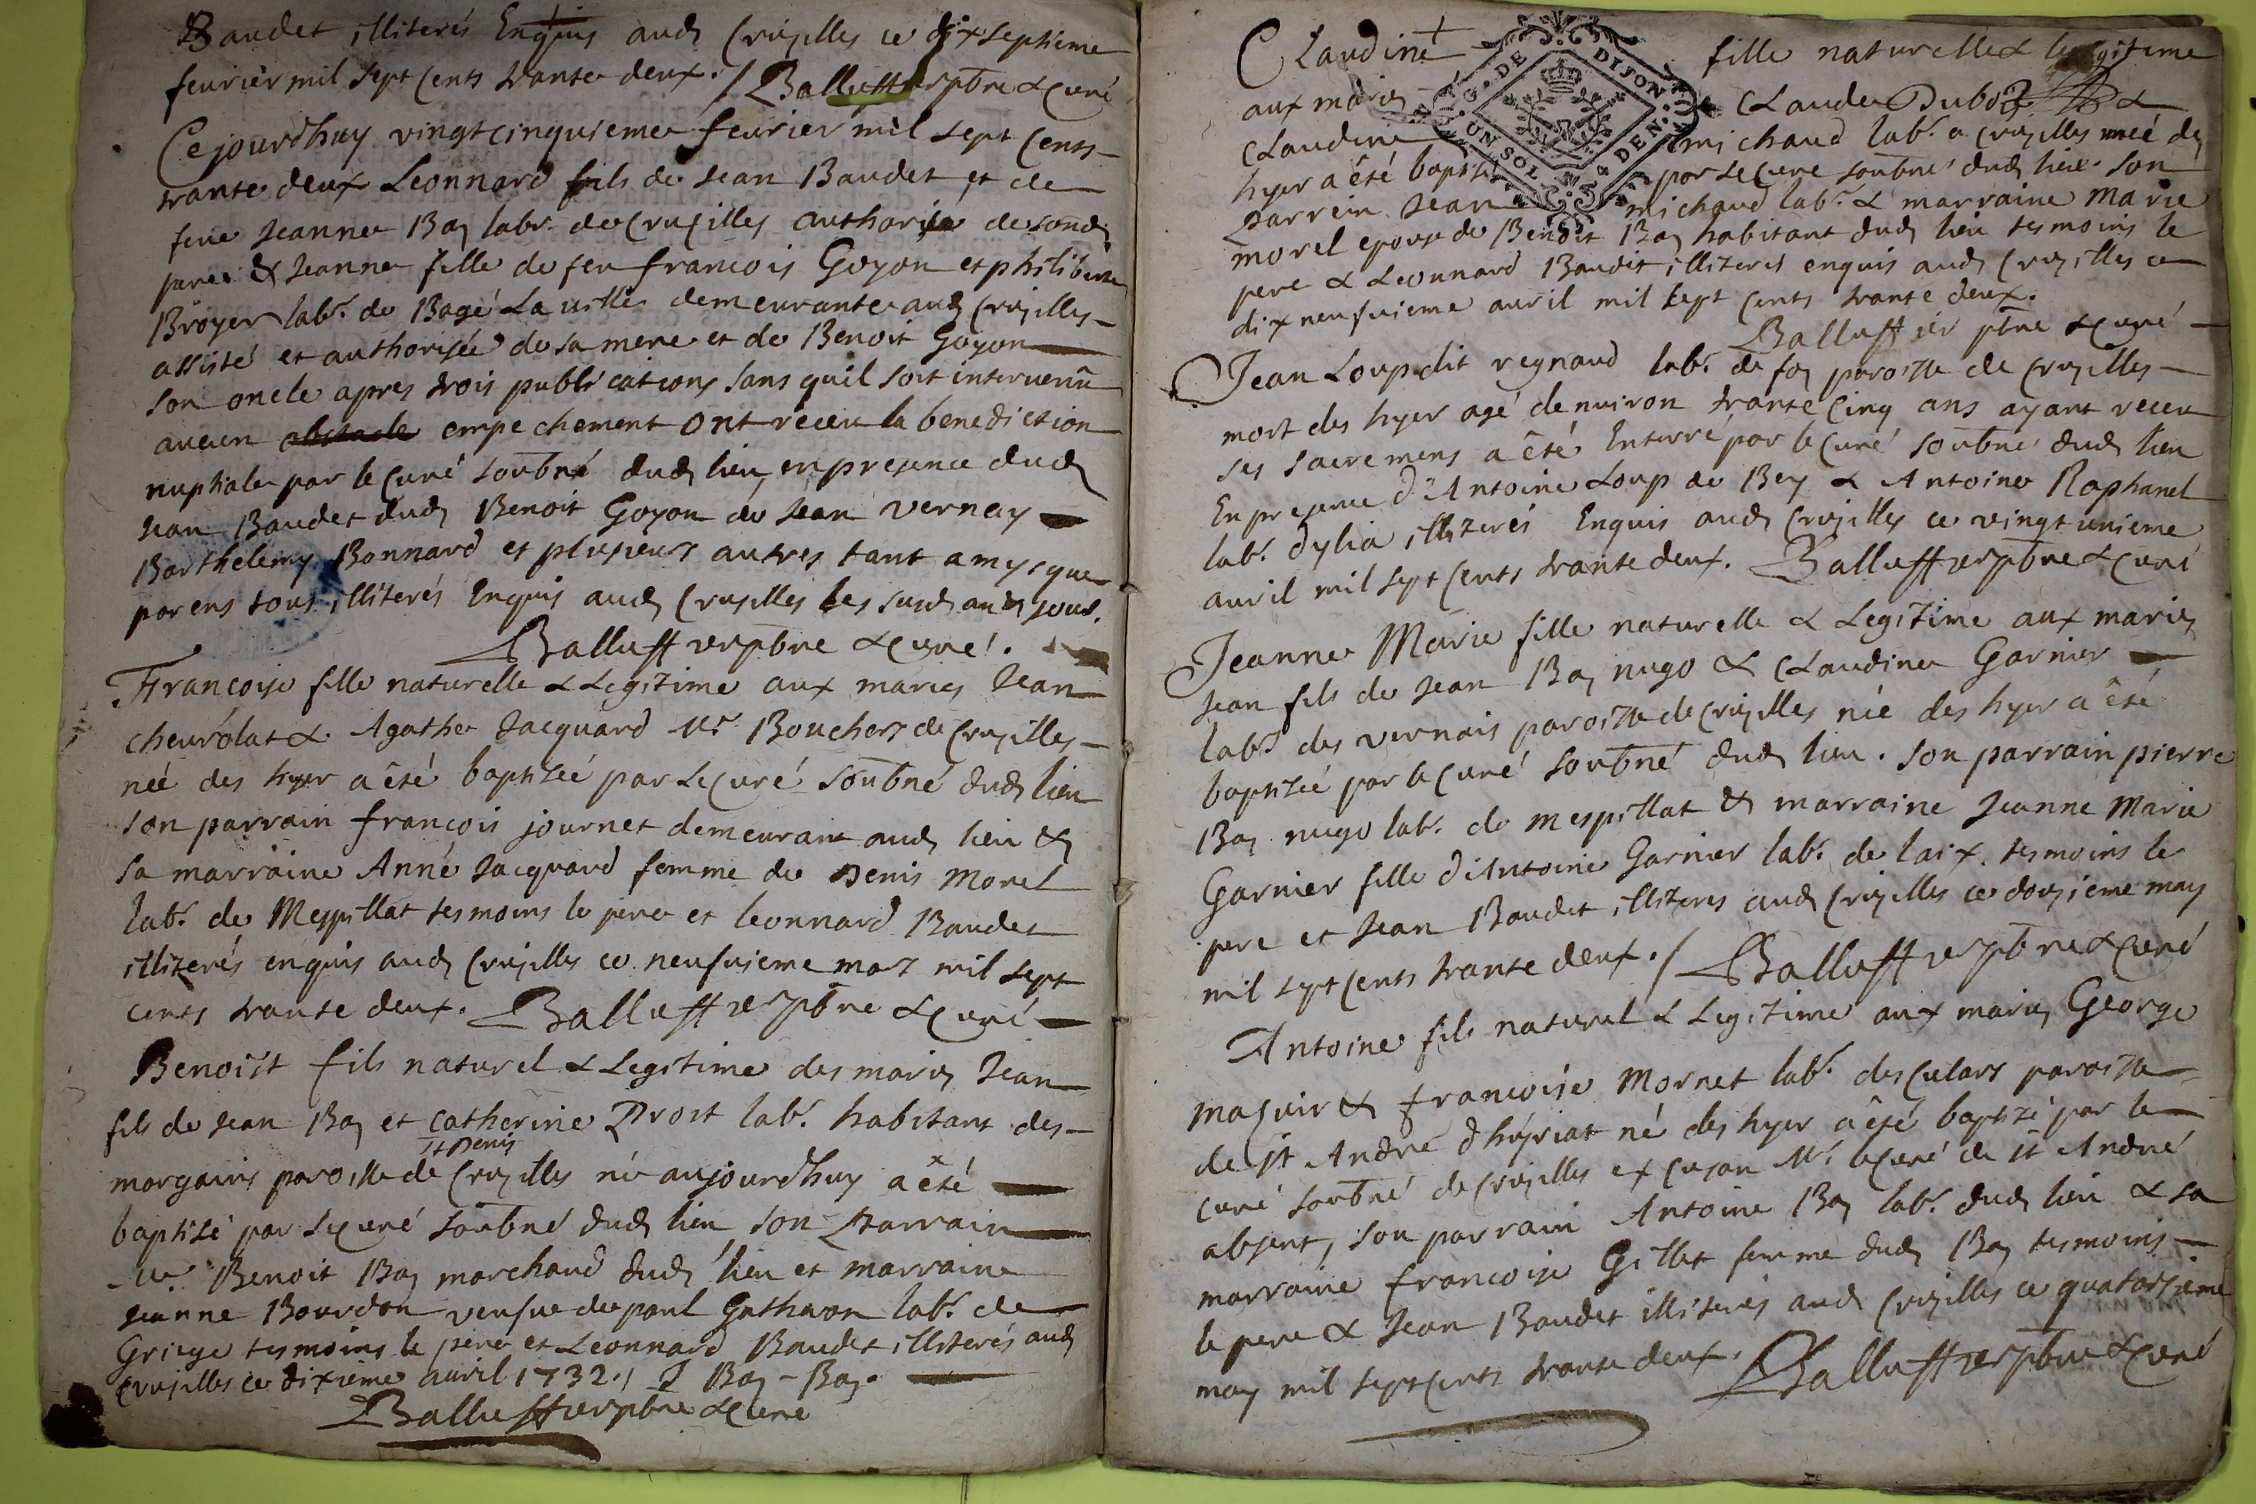 Baudet illiterés Enquis aud Crusilles ce dix septieme
feurier mil sept cents trante deux. / Balluffier ptre & curé
Cejourdhuy vingtcinquieme feurier mil sept cents
trante deux Leonnard fils de Jean Baudet et de
feue Jeanne Bay labr. de Crusilles authorisé de sond
pere & Jeanne fille de feu francois Goyon et philiberte
Broyer labr. de Bagé La ville demeurante aud Crusilles
assisté et authorisée de sa mere et de Benoit Goyon
son oncle apres trois publications sans quil soit interuenu
aucun empechement ont receu la benediction
nuptiale par le curé soubné dud lieu, en presence dud
Jean Baudet dud Benoit Goyon de Jean Vernay
Barthelemy Bonnard et plusieurs autres tant amys que
parens tous illiterés Enquis aud Crusilles les susd an & jour.
Balluffier ptre & curé.
Francoise fille naturelle & Legitime aux maries Jean
cheurolat & Agathe Jacquard Mr Bouchers de Crusilles
née des hyer a êté baptisée par le curé soubné dud lieu
son parrain francois journet demeurant aud lieu &
sa marraine Anne Jacquard femme de Denis Morel
labr. de Mespillat tesmoins le pere et leonnard Baudet
illiterés enquis aud Crusilles ce neufuieme mars mil sept
cents trante deux. Balluffier ptre & curé
Benoist fils naturel & Legitime des maries Jean
fils de Jean Bay et Catherine Prost labr. habitant des
St Denis
morgains paroisse de Crusilles né aujourdhuy a êté
baptisé par le curé soubné dud lieu, son Parrain
Mr. Benoit Bay marchand dud lieu et marraine
Jeanne Bourdon veufue de paul Guthuon labr. de
Griege tesmoins le pere et Leonnard Baudet illiterés aud
Crusilles ce dixieme auril 1732. / J Bay - Bay.
Balluffier ptre & curé
Claudine fille naturelle & legitime
G. DE DIJON
UN SOL. MA & DEN.
aux maries Claude Dubois &
Claudine michaud labr. a Crusilles née des
hyer a êté baptisée par le curé soubné dud lieu. son
Parrein Jean michaud labr. & marraine Marie
morel epouse de Benoit Bay habitant dud lieu tesmoins le
pere & Leonnard Baudet illiterés enquis aud Crusilles ce
dix neufuieme auril mil sept cents trante deux.
Balluffier ptre & curé
Jean Loup dit regnaud labr. de foy paroisse de Crusilles
mort des hyer agé denuiron trante Cinq ans ayant receu
ses sacremens a êté Enterré par le Curé soubné dud lieu
En presence d'Antoine Loup de Bey & Antoine Raphanel
labr. dylia illiterés Enquis aud Crusilles ce vingt unieme
auril mil sept cents trante deux. Balluffier ptre & curé
Jeanne Marie fille naturelle & Legitime aux maries
Jean fils de Jean Bay nugo & Claudine Garnier
labrs des vernais paroisse de Crusilles née des hyer a êté
baptisée par le curé soubné dud lieu. son parrain pierre
Bay nugo labr. de mespillat & marraine Jeanne Marie
Garnier fille d'Antoine Garnier labr. de laix. tesmoins le
pere et Jean Baudet illiterés aud Crusilles ce dousieme may
mil sept cents trante deux. / Balluffier ptre & curé
Antoine fils naturel & Legitime aux maries George
& francoise Mornet labr. des paroisse
de St André dhuyriat né des hyer a êté baptizé par le
curé soubné de Crusilles Mr. le curé de St André
absent, son parrain Antoine Bay labr. dud lieu & sa
marraine francoise Gillet femme dud Bay tesmoins
le pere & Jean Baudet illiterés aud Crusilles ce quatorsieme
may mil sept cents trante deux. Balluffier ptre & curé